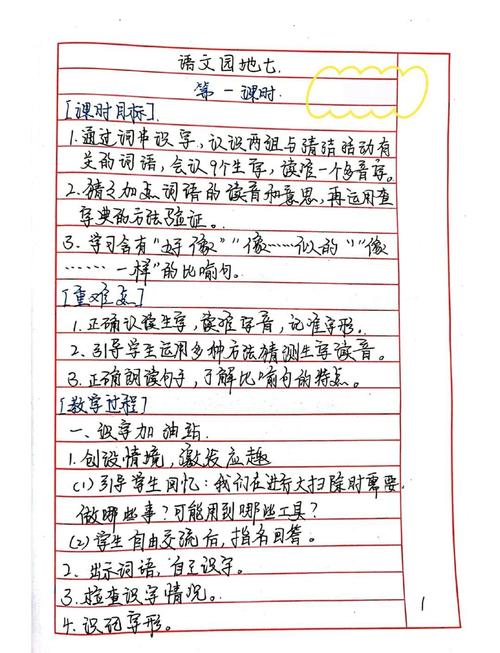 语文园地七.
第一课时.
[课时目标].
1.通过词串识字,认识两组与清洁活动有
关的词语,会认9个生字,读准一个多音字.
2.猜猜加点词语的读音和意思,再运用查
字典的方法验证。
3.学习含有“好像”“像……似的”“像
……一样”的比喻句。
[重难点]
1.正确认读生字,读准字音,记准字形.
2.引导学生运用多种方法猜测生字读音。
3.正确朗读句子,了解比喻句的特点。
[教学过程]
一、识字加油站.
1.创设情境,激发应趣
(1)引导学生回忆:我们在进行大扫除时需要
做哪些事?可能用到哪些工具?
(2)学生自由交流后,指名回答。
2、出示词语,自主识字。
3.检查识字情况。
4.识记字形。
1